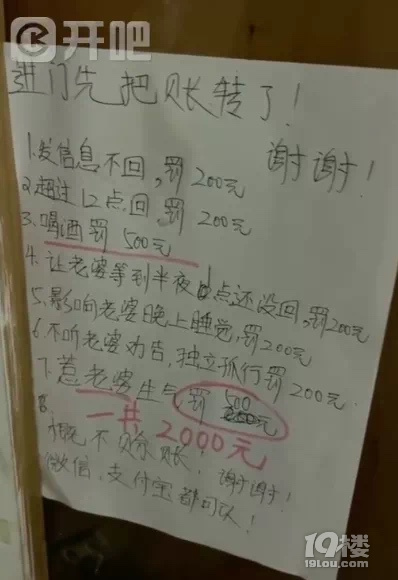 开吧
进门先把账转了！
谢谢！
1.发信息不回，罚200元
2.超过12点回，罚200元
3.喝酒罚500元
4.让老婆等到半夜点还没回，罚200元
5.影响老婆晚上睡觉，罚200元
6.不听老婆劝告，独立孤行罚200元.
7.惹老婆生气罚500元
一共2000元
8.概不赊账！谢谢！
微信、支付宝都可以！
19楼
19lou.com